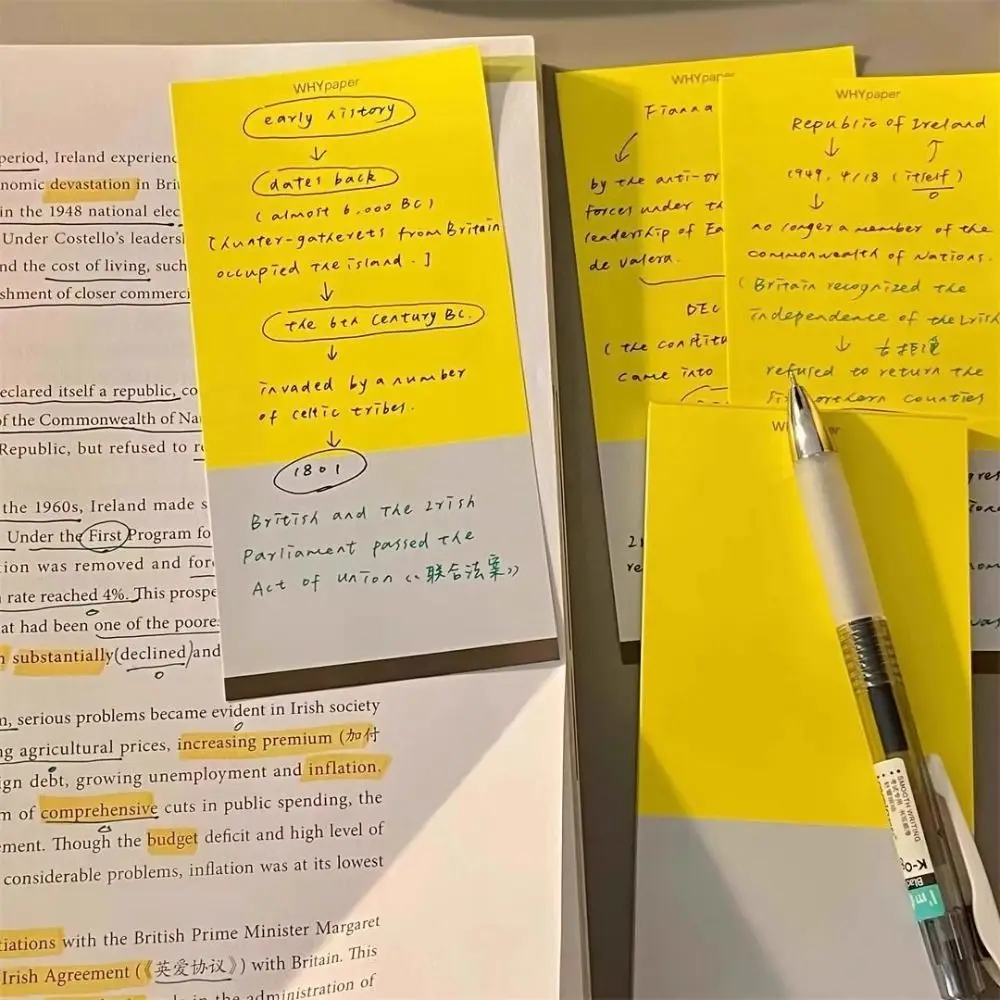 period, Ireland experienc
nomic devastation in Bri
in the 1948 national elec
Under Costello's leadersl
nd the cost of living, such
shment of closer commerci
eclared itself a republic, co
of the Commonwealth of Na
Republic, but refused to r
the 1960s, Ireland made s
Under the First Program fo
tion was removed and for
rate reached 4%. This prospe
at had been one of the poore
n substantially (declined) and
n, serious problems became evident in Irish society
ng agricultural prices, increasing premium (加付
ign debt, growing unemployment and inflation.
m of comprehensive cuts in public spending, the
ement. Though the budget deficit and high level of
considerable problems, inflation was at its lowest
tiations with the British Prime Minister Margaret
Irish Agreement (《英爱协议》) with Britain. This
in the administration of
WHYpaper
early history
↓
dates back
(almost 6,000 BC)
[hunter-gatherets from Britain
occupied the island.]
↓
the 6th Century BC.
↓
invaded by a number
of celtic tribes.
↓
1801
British and the Irish
Parliament passed the
Act of union《联合法案》
WHYpaper
Fianna
↙
by the anti-
forces under th
leadership of Ea
de Valera.
DEC
(the constitu
came into
WHYpaper
Republic of Ireland
↓ ↑
1949, 4/18 (itself)
↓
no longer a member of the
commonwealth of Nations.
(Britain recognized the
independence of the Irish
↓
refused to return the
northern counties
SMOOTH WRITING
I'm